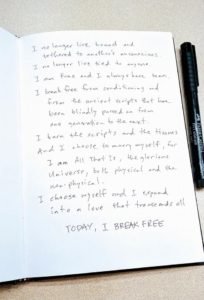 I no longer live bound and
tethered to another's unconsciousness.
I no longer live tied to anyone.
I am free and I always have been.
I break free from conditioning and
from the ancient scripts that have
been blindly passed on from
one generation to the next.
I burn the scripts and the tissues
And I choose to marry myself, for
I am All That Is, the glorious
Universe, both physical and the
non-physical.
I choose myself and I expand
into a love that transcends all
TODAY, I BREAK FREE